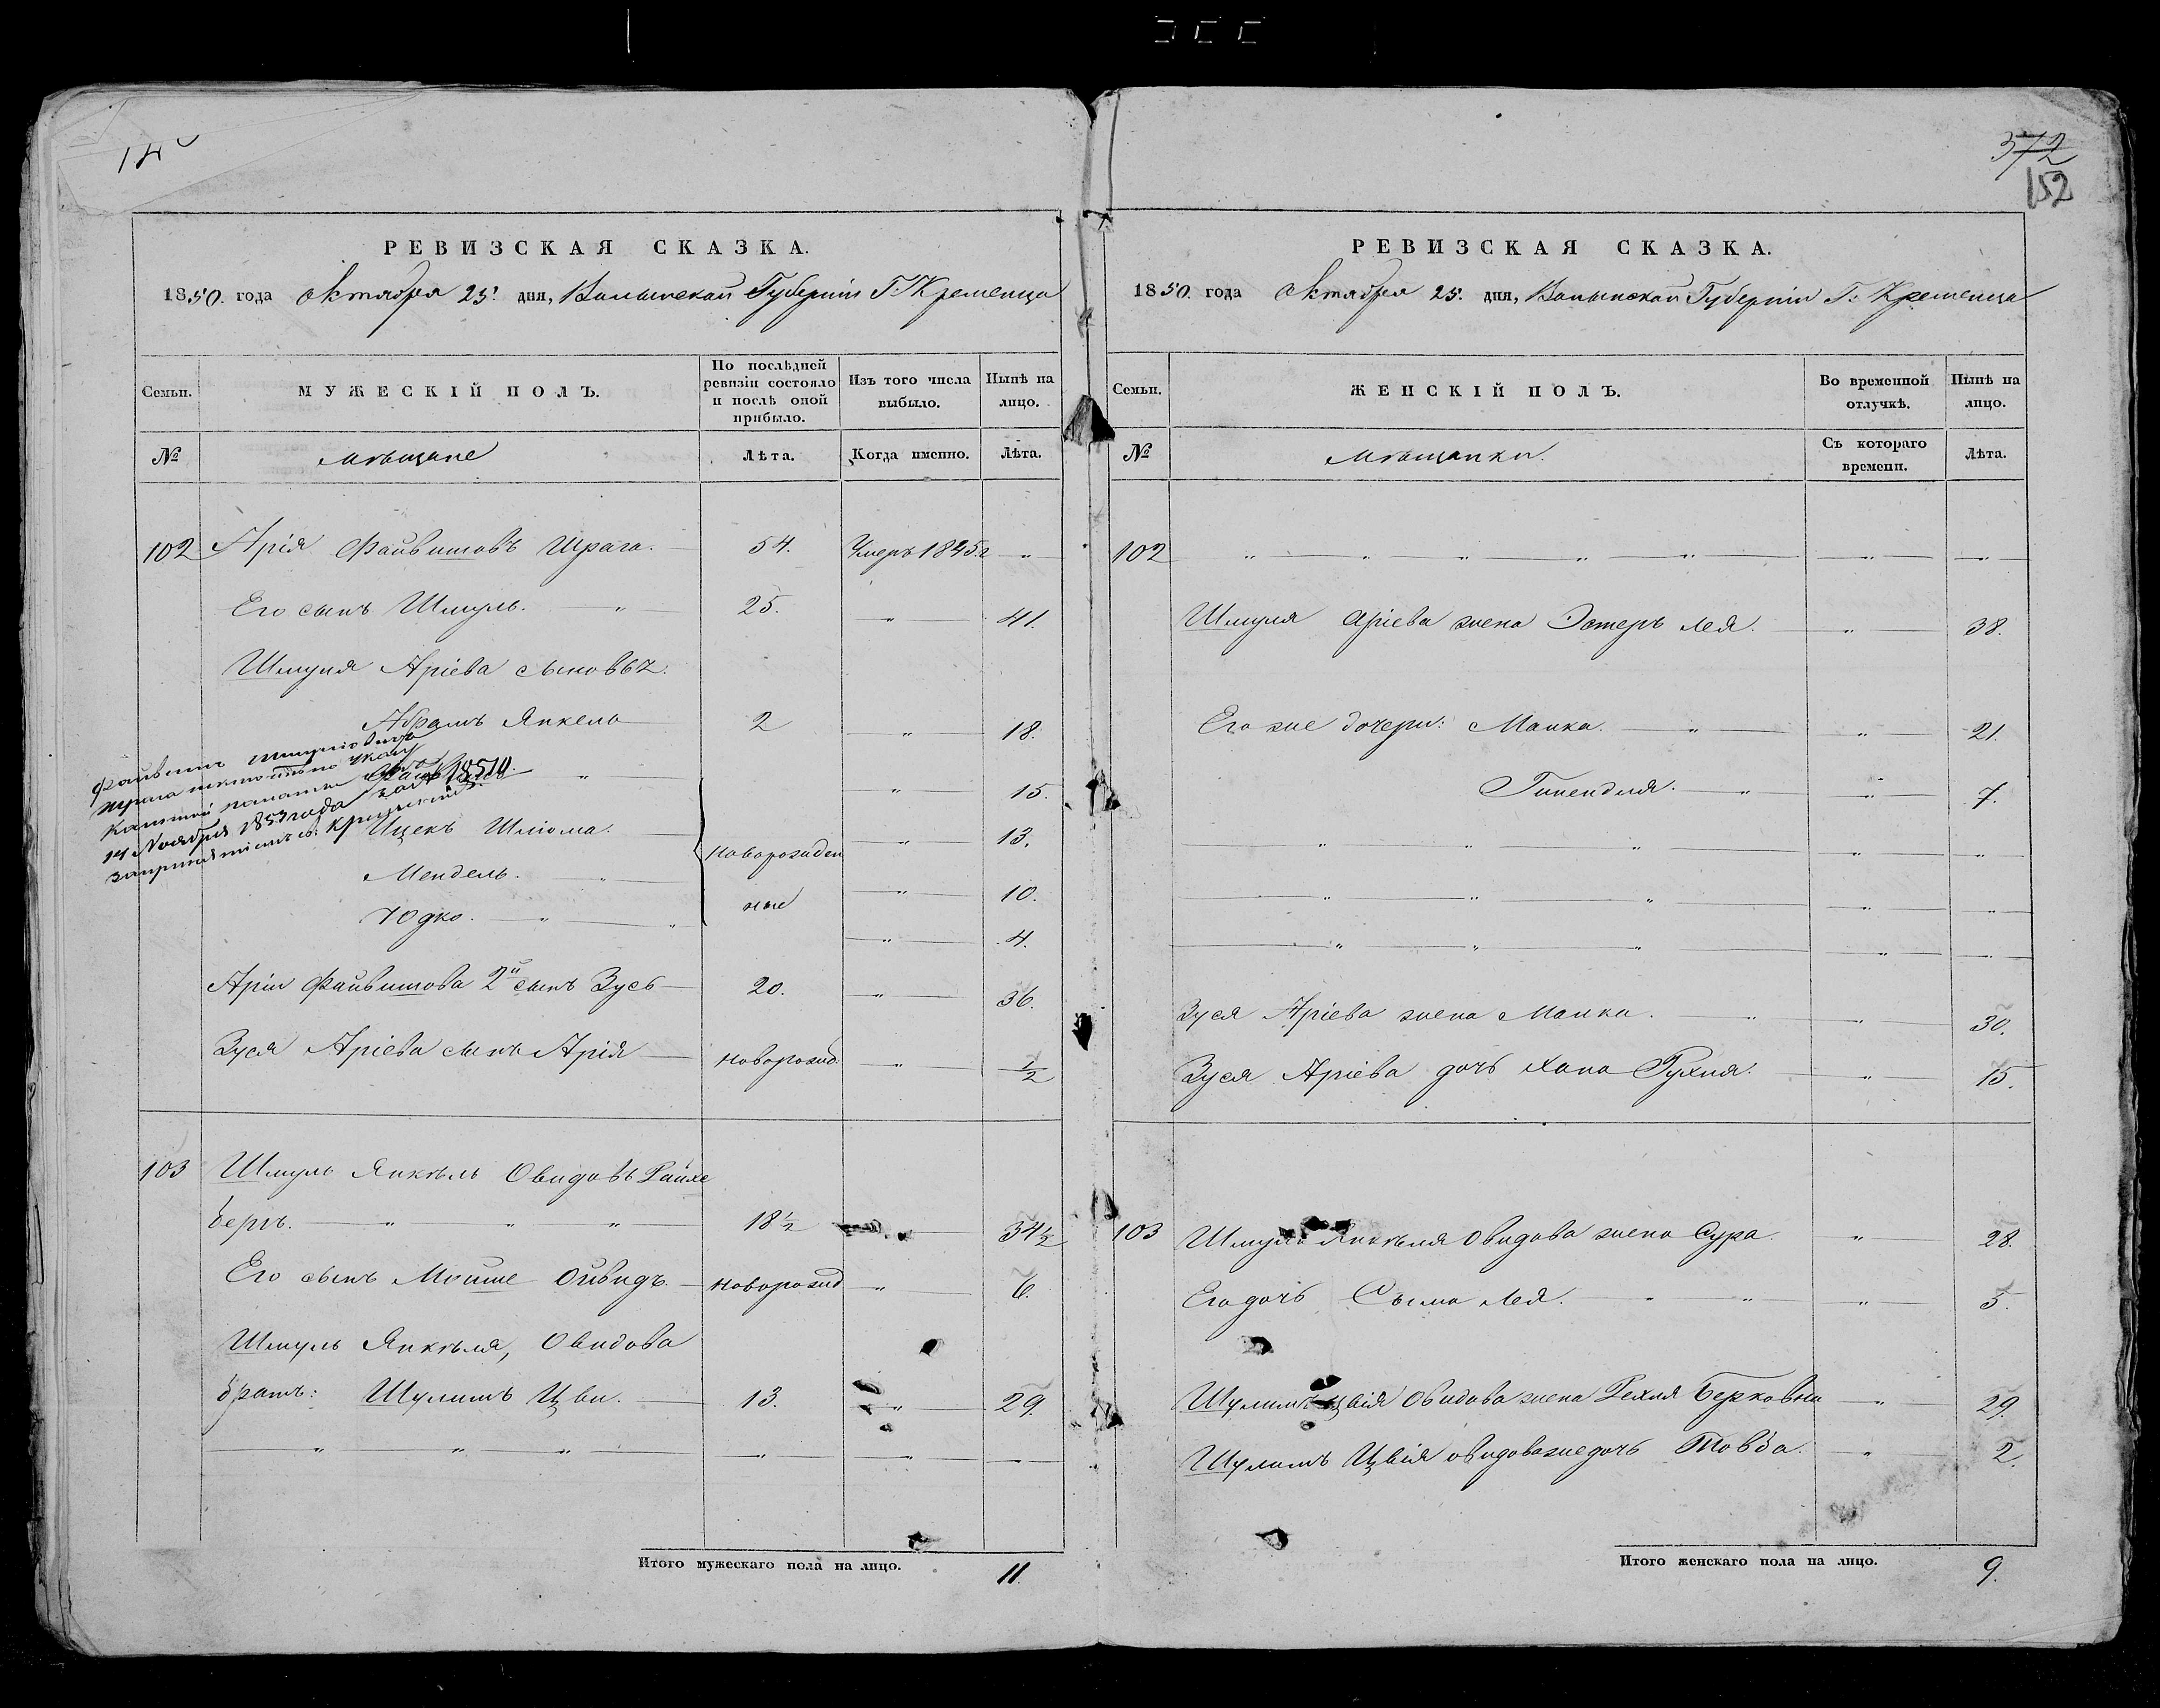 372
152
РЕВИЗСКАЯ СКАЗКА.
1850. года Октября 25. дня, Волынской Губерніи Г. Кременца
Семьи. МУЖЕСКІЙ ПОЛЪ. По послѣдней ревизіи состояло и послѣ оной прибыло. Изъ того числа выбыло. Нынѣ на лицо.
№ мѣщане Лѣта. Когда именно. Лѣта.
102 Арія Файвишовъ Шрага. 54. Умеръ 1845. г "
Его сынъ Шмуль. " 25. " 41.
Шмуля Аріева сыновья:
Абрамъ Янкель 2 " 18.
" " 15.
Ицекъ Шліома. новорожден " 13.
Мендель. " " 10.
Юдко. " " ные " 4.
Аріи Файвишова 2й сынъ Зусь 20. " 36.
Зуся Аріева сынъ Арія новорожд. " 1/2
Файвишъ
14 Ноября
103 Шмуль Янкѣль Овидовъ Райхе
бергъ. " " " 18 1/2 " 34 1/2
Его сынъ Мойше Ойвидъ. новорожд " 6.
Шмуль Янкѣля, Овидова
братъ: Шулимъ Цви. 13. " 29.
" " " " " "
Итого мужескаго пола на лицо. 11.
РЕВИЗСКАЯ СКАЗКА.
1850. года Октября 25. дня, Волынской Губерніи Г. Кременца
Семьи. ЖЕНСКІЙ ПОЛЪ. Во временной отлучкѣ. Нынѣ на лицо.
№ Мѣщанки. Съ котораго времени. Лѣта.
102 " " " " " " "
Шмуля Аріева жена Эстеръ Лея. " 38.
Его же дочери: Манка. " " 21.
Гинендля. " " 7.
" " " " "
" " " " "
" " " " "
Зуся Аріева жена Манка. " " 30.
Зуся Аріева дочь Хана Рухля. " 15.
103 Шмуль Янкѣля Овидова жена Сура. " 28.
Его дочь Сыма Лея. " " " 5.
Шулимъ Цвія Овидова жена Рехля Берковна " 29.
Шулимъ Цвія Овидова же дочь Товба. " 2.
Итого женскаго пола на лицо. 9.